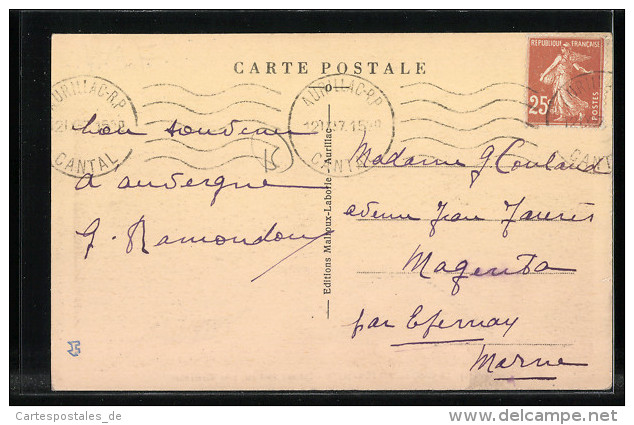 CARTE POSTALE
REPUBLIQUE FRANÇAISE
25
POSTES
AURILLAC-R.P
CANTAL
AURILLAC-R.P
CANTAL
CANTAL
bon souvenir
d'auvergne
G. Ramondou
Editions Malroux-Laborie - Aurillac
Madame G Coulaud
avenue Jean Jaurès
Magenta
par Epernay
Marne
Cartespostales_de
www.delcampe.net